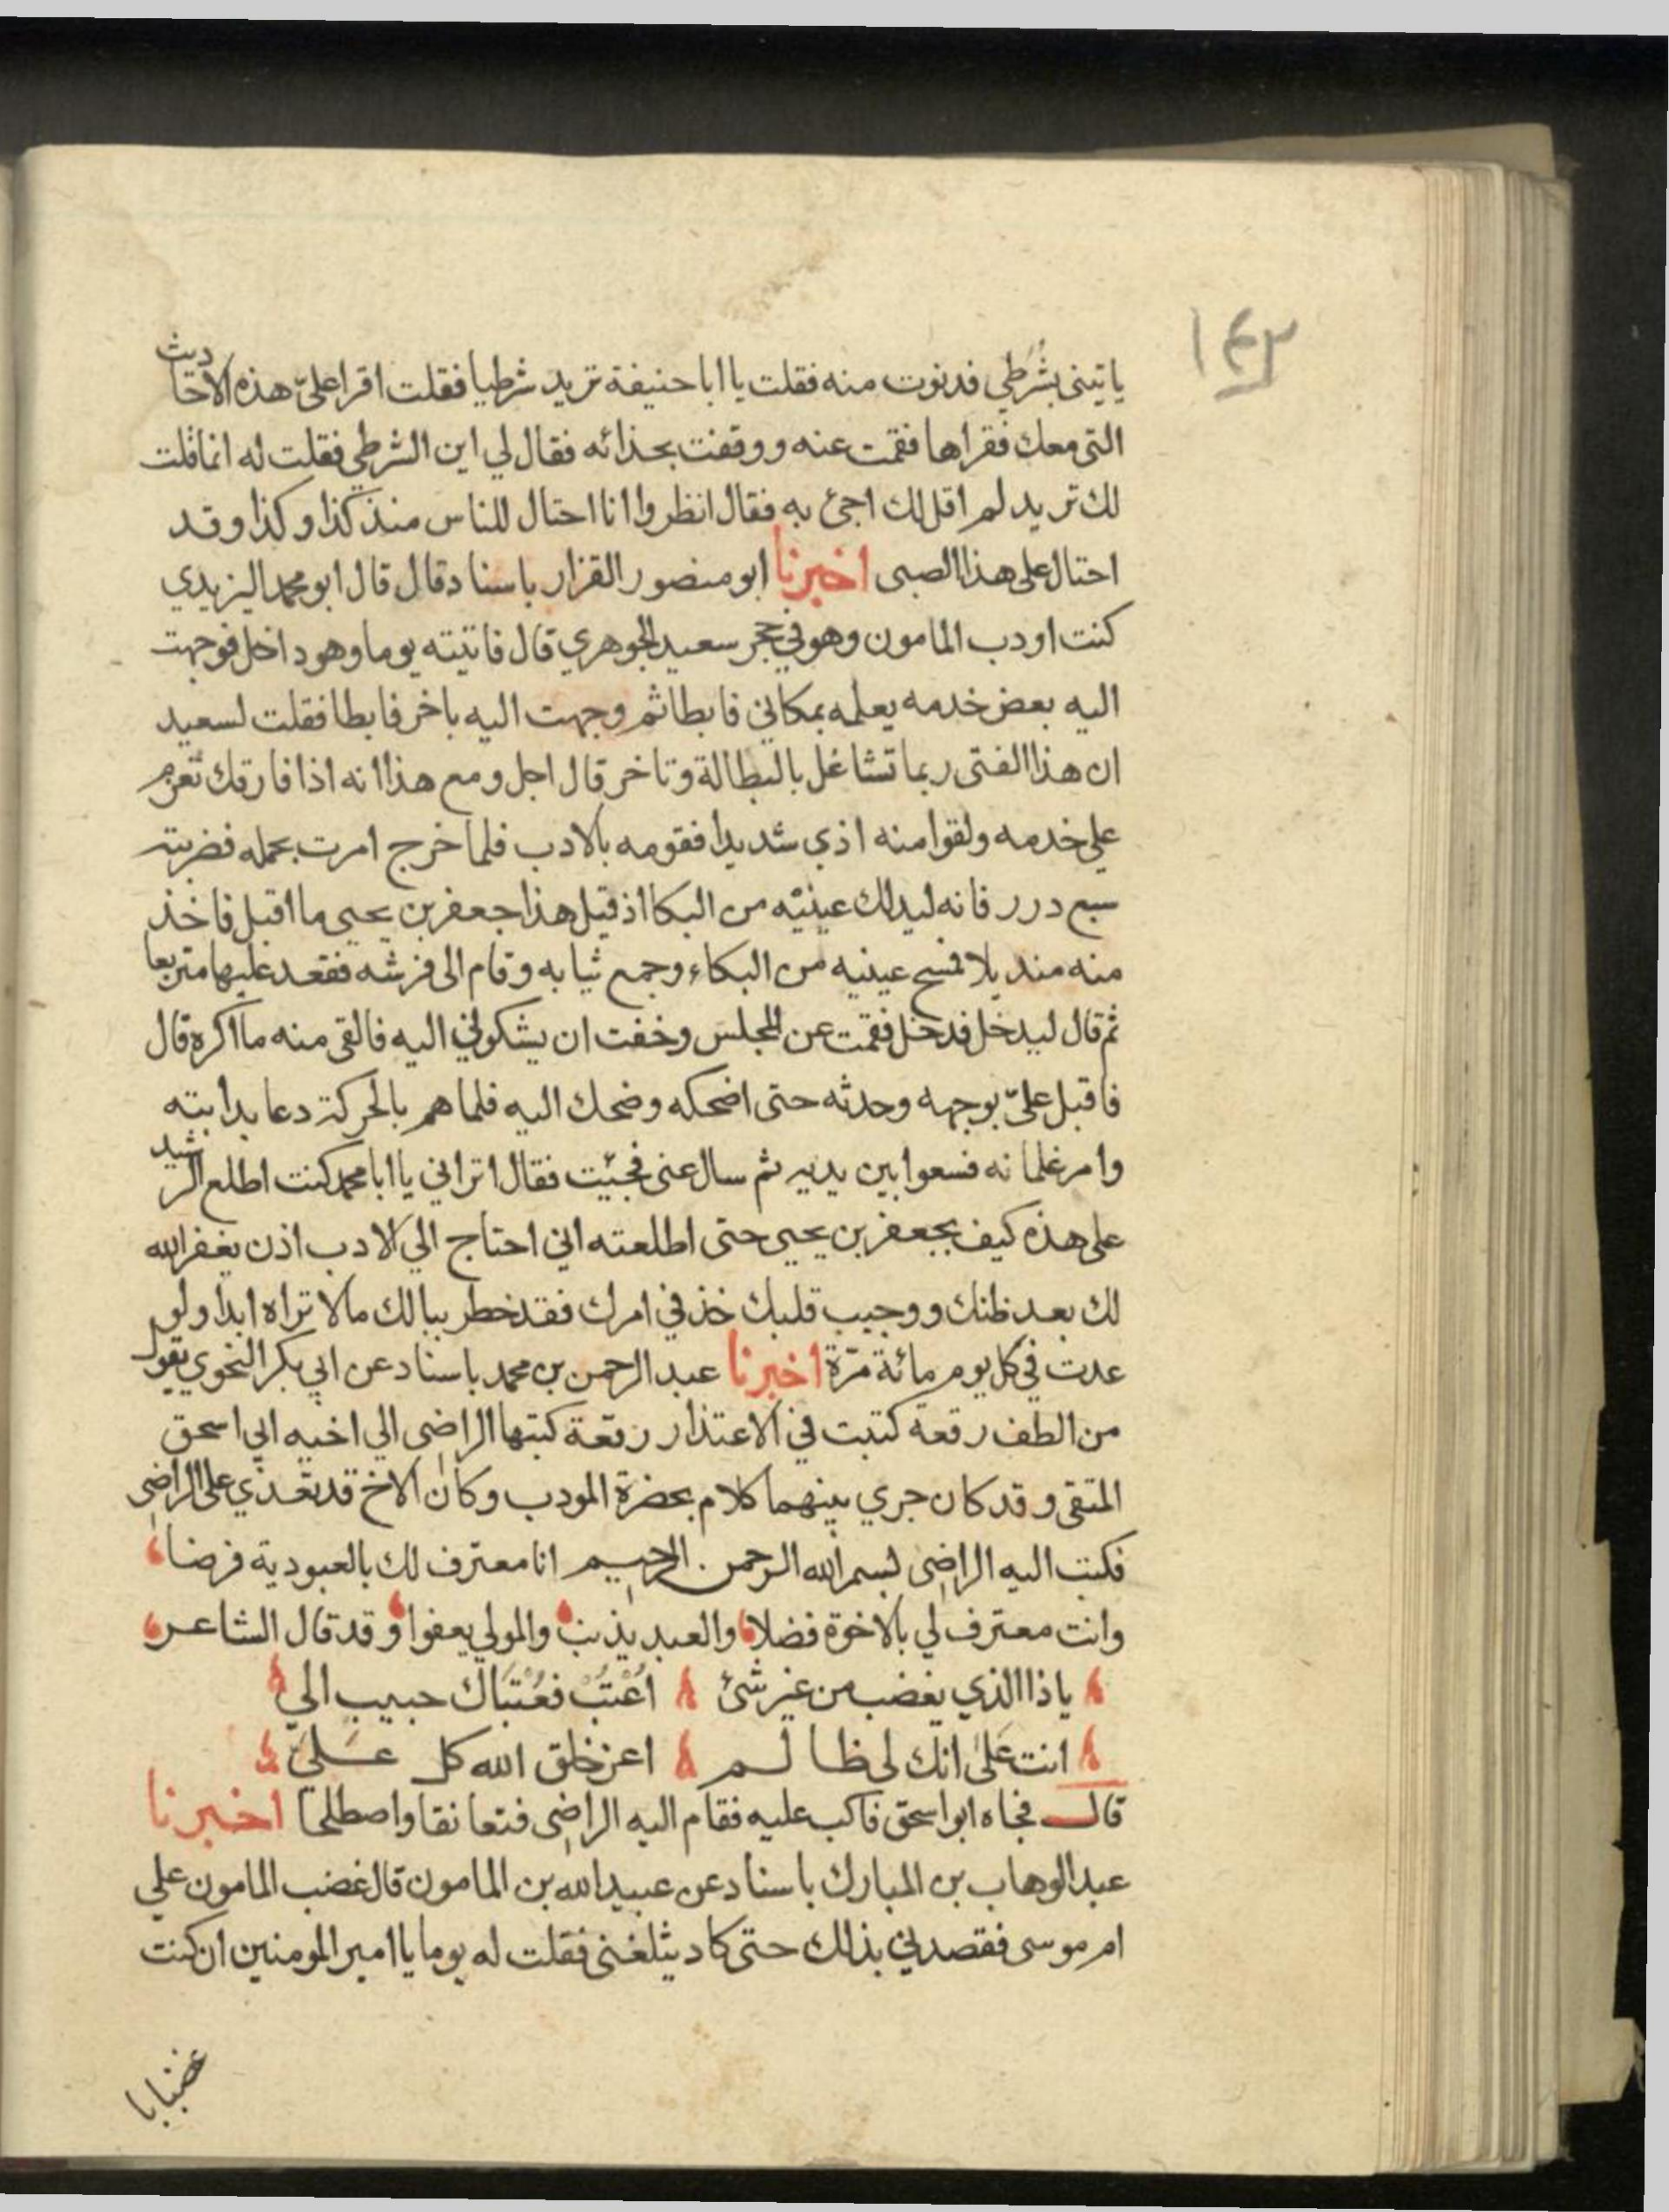 ١٤٣
ياتينى بشُرَطي فدنوت منه فقلت يا ابا حنيفة تريد شرطيا فقلت اقرا علىّ هذه الاحاديث
التى معك فقراها فقمت عنه ووقفت بحذائه فقال لي اين الشرطي فقلت له انما قلت
لك تريد لم اقل لك اجئ به فقال انظروا انا احتال للناس منذ كذا وكذا وقد
احتال على هذا الصبى اخبرنا ابو منصور القزار باسناد قال قال ابو محمد اليزيدي
كنت اودب المامون وهو في حجر سعيد الجوهري قال فاتيته يوما وهو داخل فوجهت
اليه بعض خدمه يعلمه بمكاني فابطا ثم وجهت اليه باخر فابطا فقلت لسعيد
ان هذا الفتى ربما تشاغل بالبطالة وتاخر قال اجل ومع هذا انه اذا فارقك تعرم
على خدمه ولقوا منه اذي شديدا فقومه بالادب فلما خرج امرت بحمله فضربته
سبع درر فانه ليدلك عينيه من البكا اذ قيل هذا جعفر بن يحيى ما اقبل فاخذ
منه منديلا فمسح عينيه من البكاء وجمع ثيابه وقام الى فرشه فقعد عليها متربعا
ثم قال ليدخل فدخل فقمت عن المجلس وخفت ان يشكوني اليه فالقى منه ما اكره قال
فاقبل علىّ بوجهه وحدثه حتى اضحكه وضحك اليه فلما هم بالحركة دعا بدابته
وامر غلمانه فسعوا بين يديه ثم سال عنى فجئيت فقال اتراني يا ابا محمد كنت اطلع الرشيد
على هذه كيف بجعفر بن يحيى حتى اطلعته اني احتاج الي الادب اذن يغفر الله
لك بعد ظنك ووجيب قلبك خذ في امرك فقد خطر ببالك مالا تراه ابدا ولو
عدت في كل يوم مائة مرّة اخبرنا عبد الرحمن بن محمد باسناد عن ابي بكر النحوي يقول
من الطف رقعة كتبت في الاعتذار رقعة كتبها الراضى الي اخيه ابي اسحق
المتقى وقد كان جري بينهما كلام بحضرة المودب وكان الاخ قد تعدي على الراضى
فكتب اليه الراضى بسم الله الرحمن الرحيم انا معترف لك بالعبودية فرضا
وانت معترف لي بالاخوة فضلا والعبد يذنب والمولي يعفوا وقد قال الشاعر
ياذا الذي يغضب من غير شئ اُعْتُبْ فعُتْبَاك حبيب الي
انت عَلىٰ انك لى ظالم اعز خلق الله كل عَلىَ
قال فجاه ابو اسحق فاكب عليه فقام اليه الراضى فتعانقا واصطلحا اخبرنا
عبد الوهاب بن المبارك باسناد عن عبيد الله بن المامون قال غضب المامون على
ام موسى فقصدني بذلك حتى كاد يثلغنى فقلت له يوما يا امير المومنين ان كنت
غضبانا